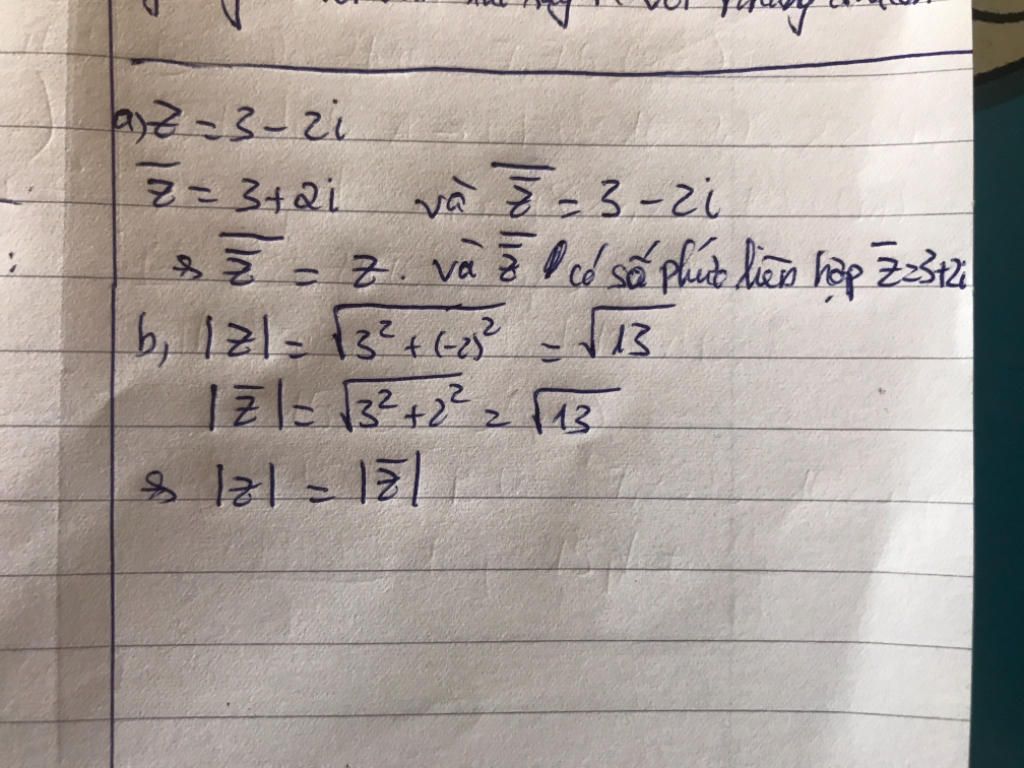 a) z = 3 - 2i
z̅ = 3 + 2i và z̿ = 3 - 2i
z̿ = z. và z̿ có số phức liên hợp z̅ = 3+2i
b, |z| = √(3² + (-2)²) = √13
|z̅| = √(3² + 2²) = √13
|z| = |z̅|